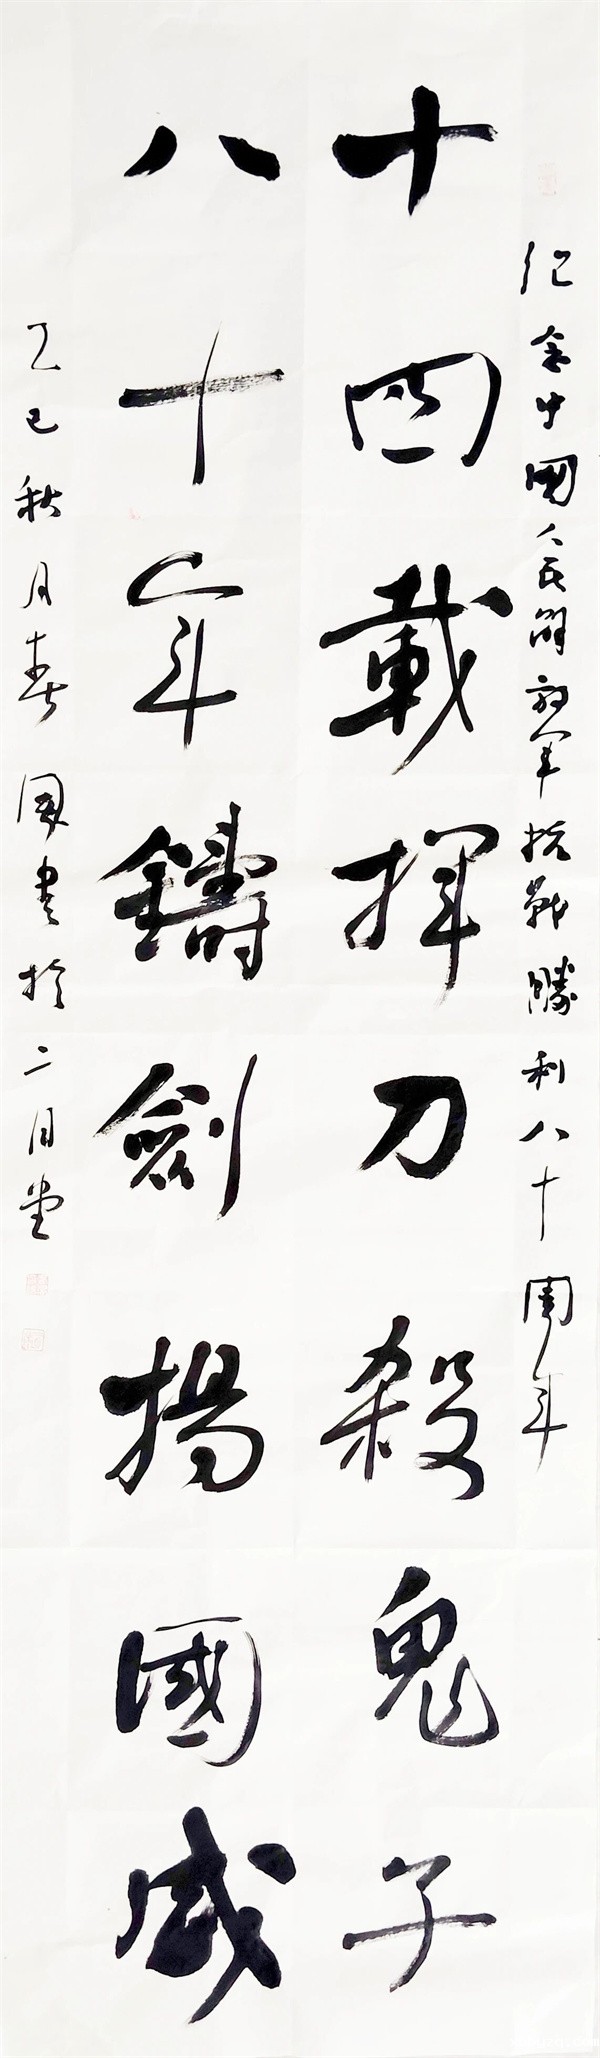 紀念中國人民解放軍抗戰勝利八十周年
十四載揮刀殺鬼子
八十年鑄劍揚國威
乙巳秋月春國書於二月堂